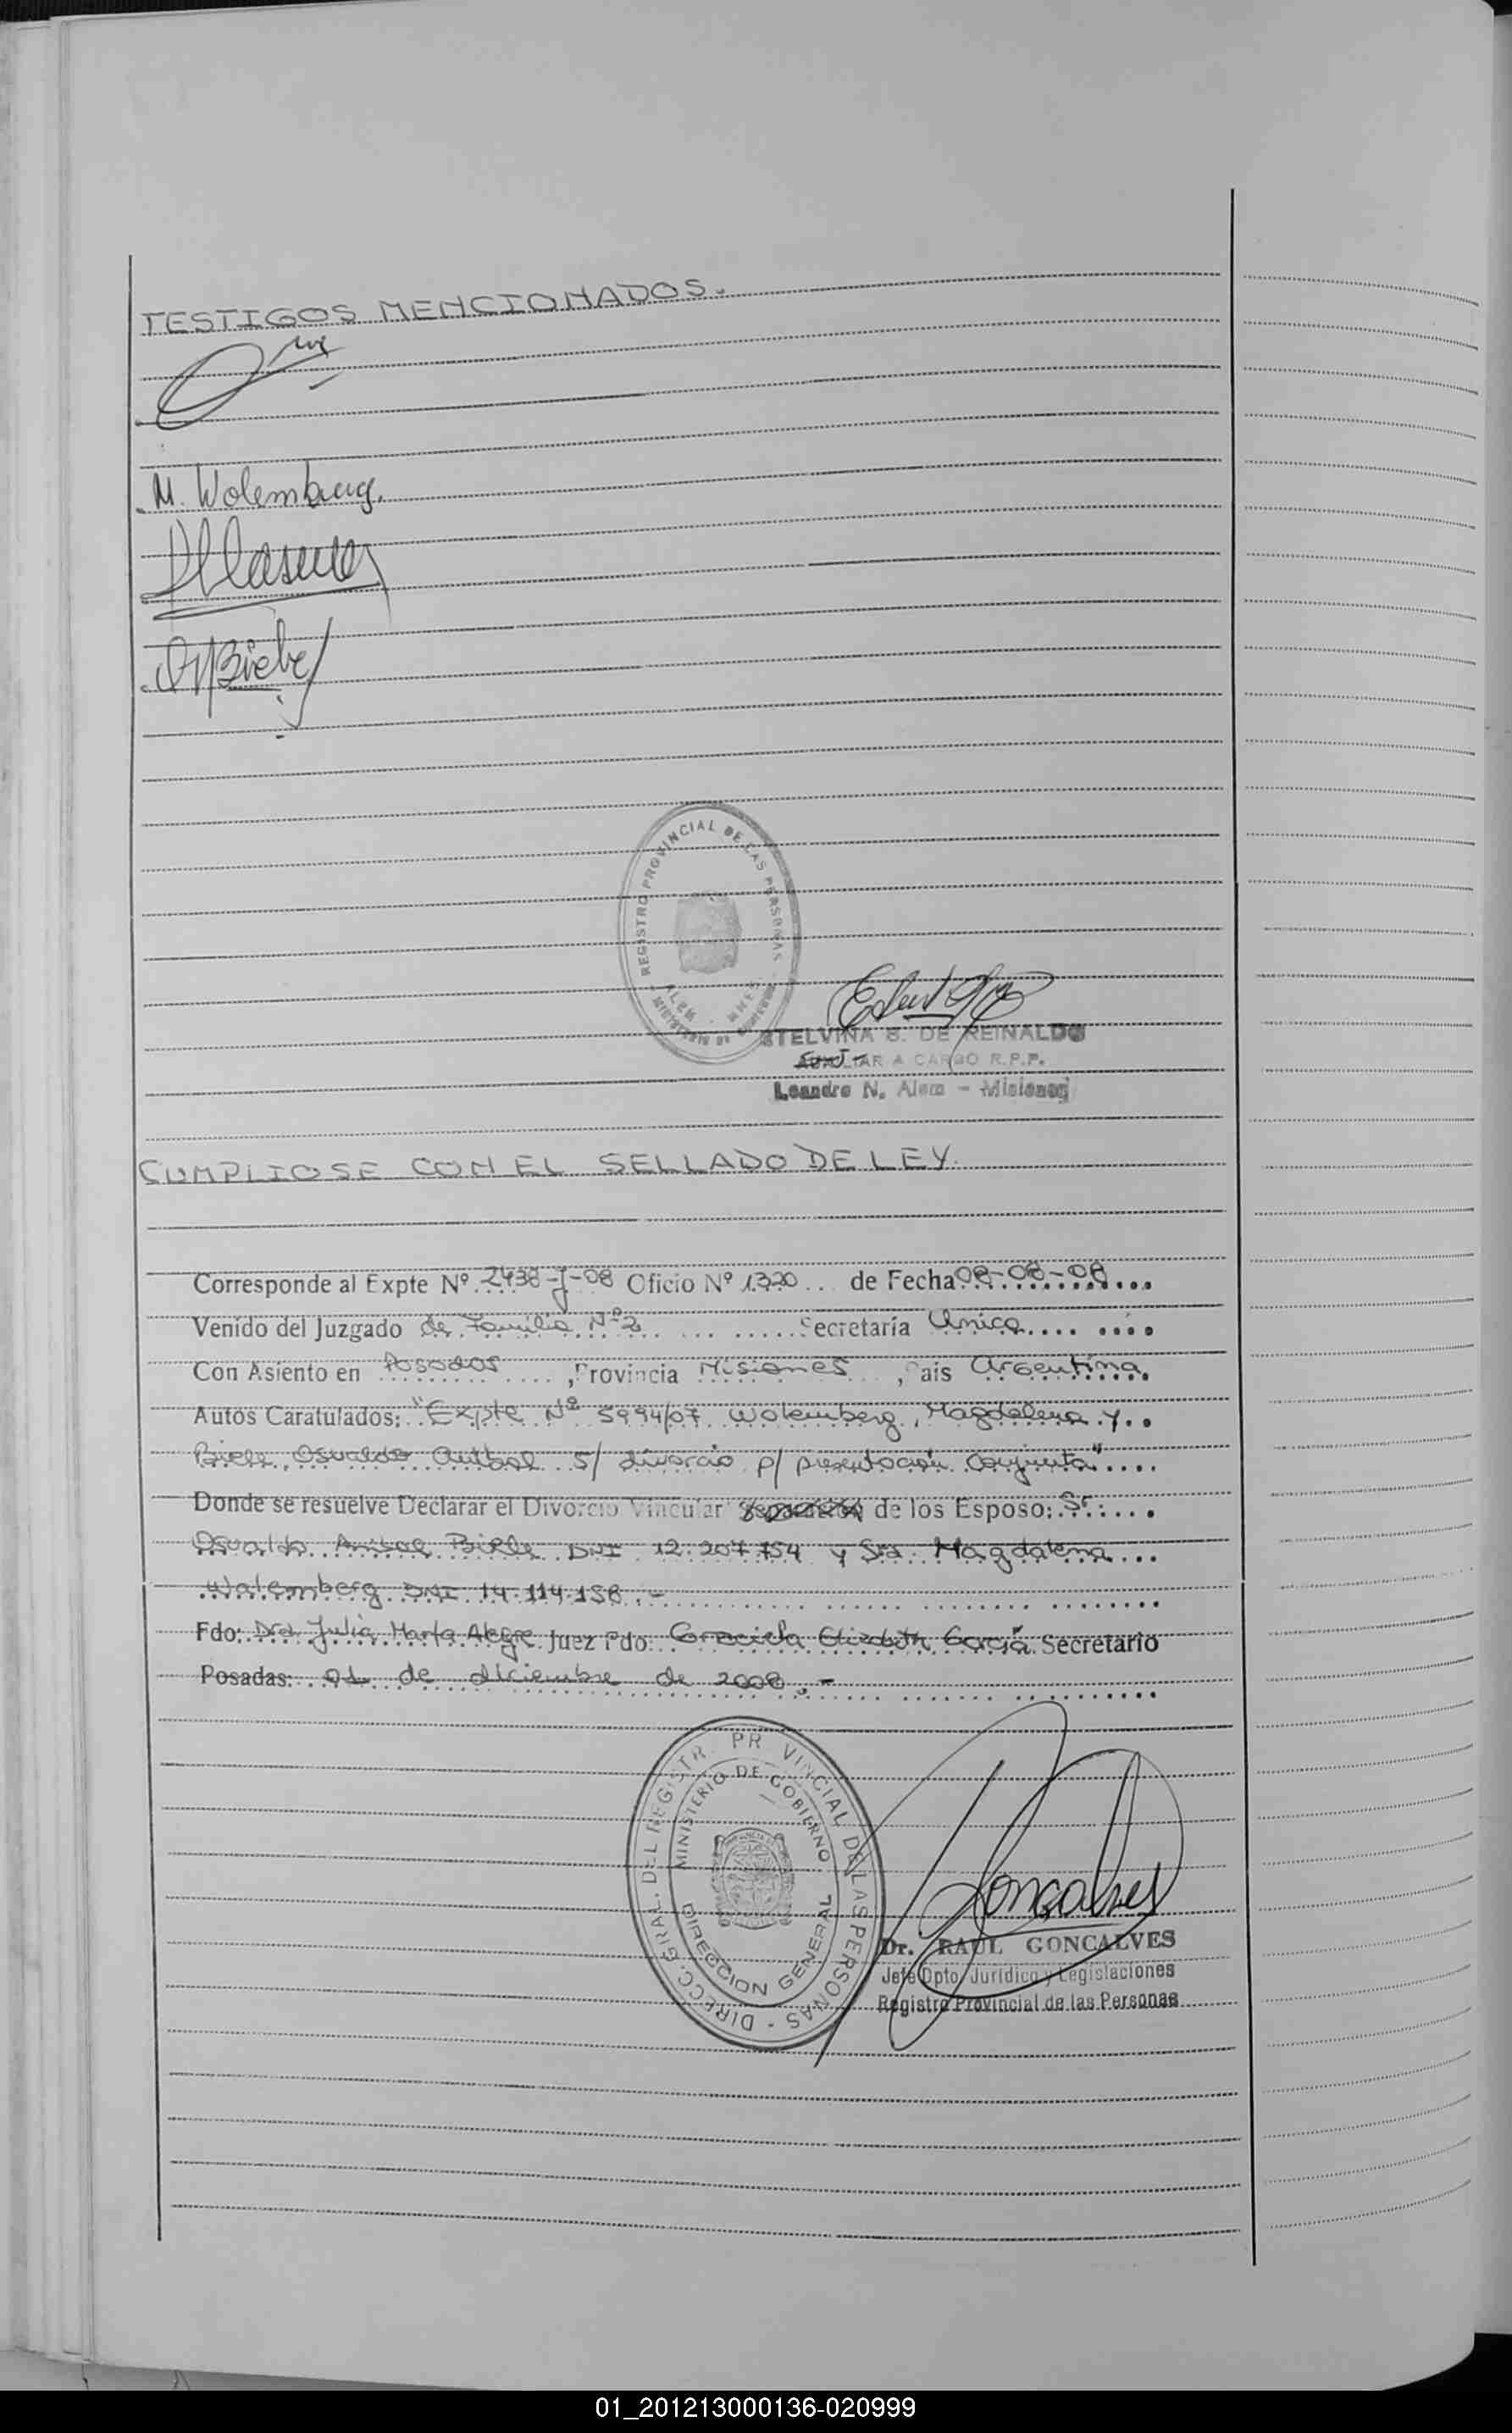 TESTIGOS MENCIONADOS.
M. Wolemberg.
REGISTRO PROVINCIAL DE LAS PERSONAS
MINISTERIO DE GOBIERNO
STELVINA B. DE REINALDO
AUXILIAR A CARGO R.P.P.
Leandro N. Alem - Misiones
CUMPLIOSE CON EL SELLADO DE LEY.
Corresponde al Expte Nº 2438-J-08 Oficio Nº 1320 de Fecha 08-08-08
Venido del Juzgado de Familia Nº 2 Secretaría Unica
Con Asiento en Posadas, Provincia Misiones, Pais Argentina
Autos Caratulados: "Expte Nº 5994/07 Wolemberg, Magdalena y
Osvaldo s/ divorcio p/ presentación conjunta"
Donde se resuelve Declarar el Divorcio Vincular de los Esposo: Sr.
Osvaldo Anibal DNI 12.207.754 y Sra. Magdalena
Walemberg DNI 14.114.158.-
Fdo: Dra Julia Marta Alegre Juez Fdo: Graciela Elizabeth Garcia Secretario
Posadas: 01 de diciembre de 2008.-
DIRECC. GRAL. DEL REGISTR. PR VINCIAL DE LAS PERSONAS -
MINISTERIO DE GOBIERNO
DIRECCION GENERAL
Goncalves
Dr. RAUL GONCALVES
Jefe Dpto. Jurídico y Legislaciones
Registro Provincial de las Personas
01_201213000136-020999